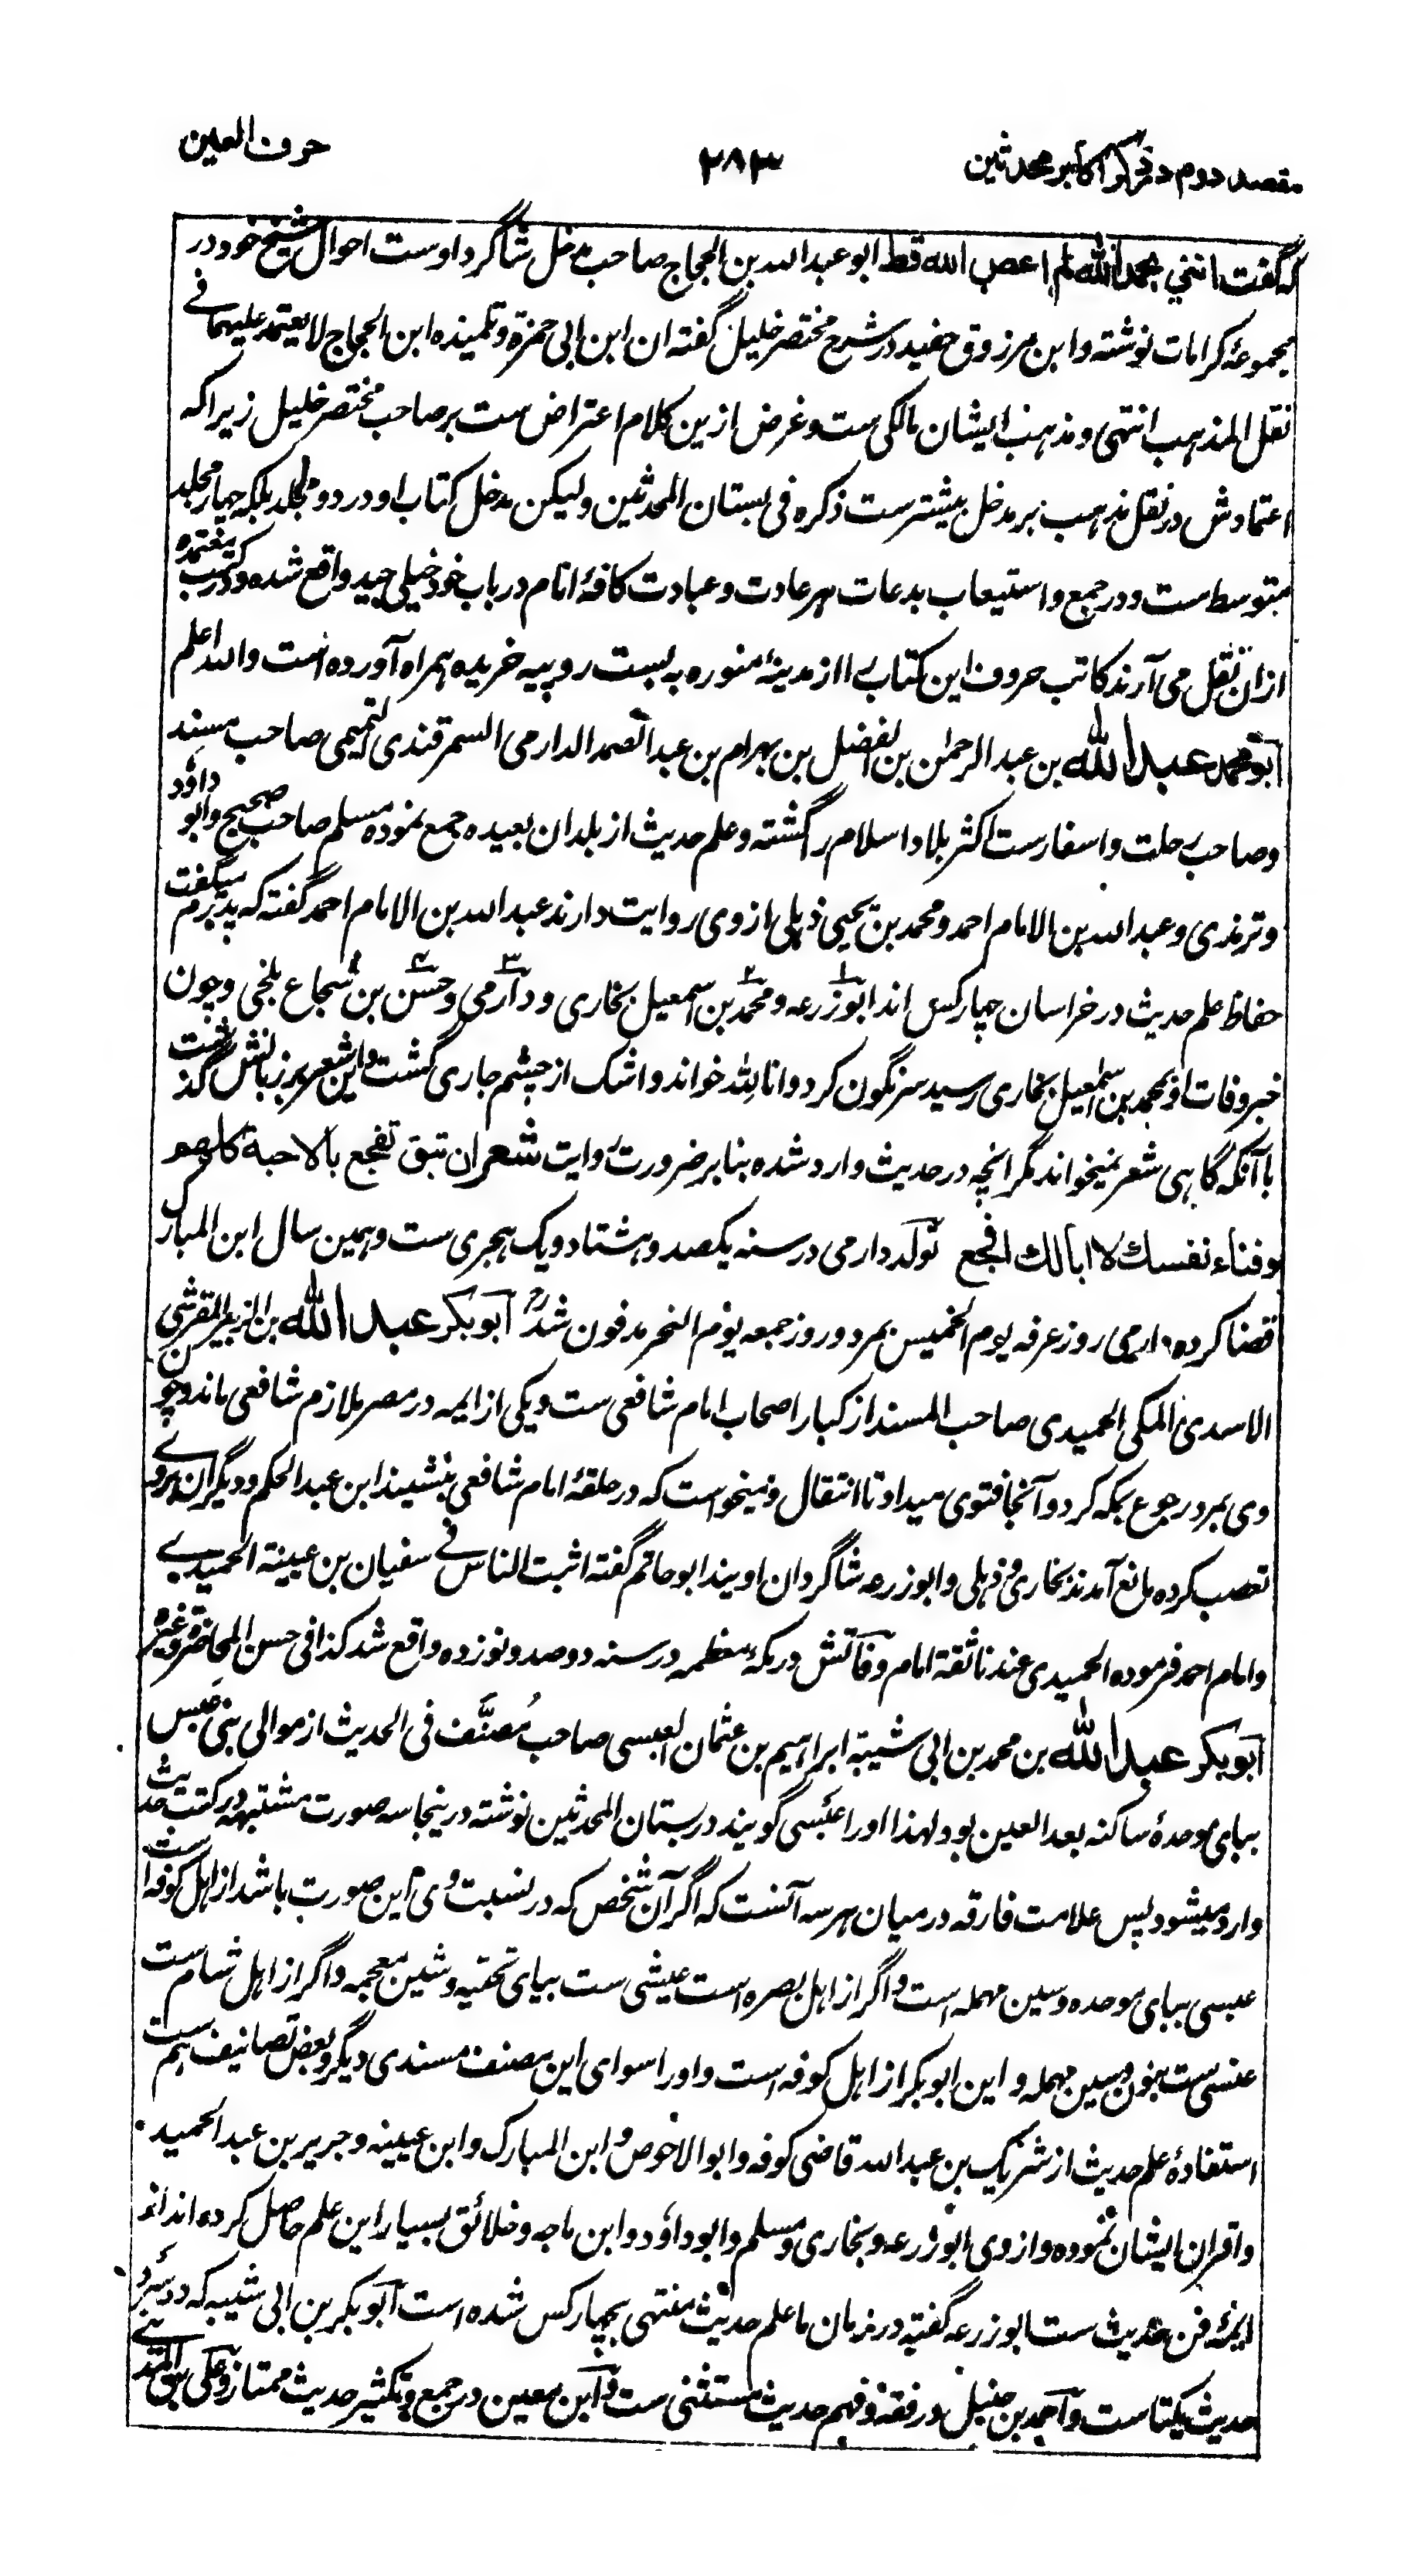 مقصد دوم در ذکر اکابر محدثین ۲۸۳ حرف العین
که گفت اننی بحمد الله لم اعص الله قط ابو عبد الله بن الحجاج صاحب مدخل شاگرد اوست احوال شیخ خود در
مجموعهٔ کرامات نوشته و ابن مرزوق حفید در شرح مختصر خلیل گفته ان ابن ابی حمزة و تلمیذه ابن الحجاج لا یعتمد علیهما فی
نقل المذهب انتهی و مذهب ایشان مالکی ست و غرض ازین کلام اعتراض ست بر صاحب مختصر خلیل زیرا که
اعتمادش در نقل مذهب بر مدخل بیشتر ست ذکره فی بستان المحدثین ولیکن مدخل کتاب او در دو مجلد بلکه چهار مجلد
متوسط ست و در جمع و استیعاب بدعات هر عادت و عبادت کافهٔ انام در باب خود خیلی جید واقع شده و در کتب معتمده
ازان نقل می آرند کاتب حروف این کتاب را از مدینهٔ منوره به بست روپیه خریده همراه آورده است والله اعلم
ابو محمد عبد الله بن عبد الرحمٰن بن الفضل بن بهرام بن عبد الصمد الدارمی السمرقندی التمیمی صاحب مسند
و صاحب رحلت و اسفار ست اکثر بلاد اسلام را گشته و علم حدیث از بلدان بعیده جمع نموده مسلم صاحب صحیح و ابو داؤد
و ترمذی و عبد الله بن الامام احمد و محمد بن یحیی ذهلی از وی روایت دارند عبد الله بن الامام احمد گفته که پدرم میگفت
حفاظ علم حدیث در خراسان چهار کس اند ابو زرعه و محمد بن اسمعیل بخاری و دارمی و حسن بن شجاع بلخی و چون
خبر وفات او بمحمد بن اسمعیل بخاری رسید سرنگون کرد و انا لله خواند و اشک از چشم جاری گشت و این شعر بر زبانش گذشت
با آنکه گاهی شعر نمیخواند مگر انچه در حدیث وارد شده بنابر ضرورت روایت شعر ان تبق تفجع بالاحبة کلهم
و فناء نفسک لا ابا لک افجع تولد دارمی در سنه یکصد و هشتاد و یک هجری ست و همین سال ابن المبارک
قضا کرده دارمی روز عرفه یوم الخمیس بمرد و روز جمعه یوم النحر مدفون شد رح ابو بکر عبد الله بن الزبیر القرشی
الاسدی المکی الحمیدی صاحب المسند از کبار اصحاب امام شافعی ست و یکی از ایمه در مصر ملازم شافعی ماند و چون
وی بمرد رجوع بمکه کرد و آنجا فتوی میداد تا انتقال و میخواست که در حلقهٔ امام شافعی بنشیند ابن عبد الحکم و دیگران بروی
تعصب کرده مانع آمدند بخاری و ذهلی و ابو زرعه شاگردان اویند ابو حاتم گفته اثبت الناس فی سفیان بن عیینة الحمیدی
و امام احمد فرموده الحمیدی عندنا ثقة امام وفاتش در مکهٔ معظمه در سنه دو صد و نوزده واقع شد کذا فی حسن المحاضرة و غیره
ابو بکر عبد الله بن محمد بن ابی شیبة ابراهیم بن عثمان العبسی صاحب مُصنَّف فی الحدیث از موالی بنی عبس
ببای موحدهٔ ساکنه بعد العین بود ولهذا او را عبسی گویند در بستان المحدثین نوشته درینجا سه صورت مشتبهه در کتب حدیث
وارد میشود پس علامت فارقه در میان هر سه آنست که اگر آن شخص که در نسبت وی این صورت باشد از اهل کوفه است
عبسی ببای موحده و سین مهمله است و اگر از اهل بصره است عیشی ست بیای تحتیه و شین معجمه و اگر از اهل شام ست
عنسی ست بنون و سین مهمله و این ابو بکر از اهل کوفه است و او را سوای این مصنف مسندی دیگر و بعض تصانیف هم ست
استفادهٔ علم حدیث از شریک بن عبد الله قاضی کوفه و ابو الاحوص و ابن المبارک و ابن عیینه و جریر بن عبد الحمید
و اقران ایشان نموده و از وی ابو زرعه و بخاری و مسلم و ابو داؤد و ابن ماجه و خلائق بسیار این علم حاصل کرده اند از
ایمهٔ فن حدیث ست ابو زرعه گفته در زمان ما علم حدیث منتهی بچهار کس شده است ابو بکر بن ابی شیبه که در سرد
حدیث یکتاست و احمد بن حنبل در فقه و فهم حدیث مستثنی ست و ابن معین در جمع و تکثیر حدیث ممتاز و علی بن المدینی